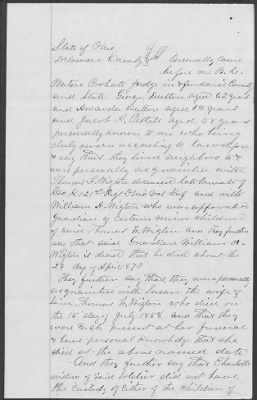 State of Ohio
Delaware County SS Personally came
before me B. C.
Waters Probate Judge in & for said County
and State George Dutton aged 62 years
and Amanda Dutton aged 54 years
and Jacob A. aged 48 years
personally known to me who being
duly sworn according to law depose
& say that they were neighbors to &
were personally acquainted with
Thomas Wigton deceased late
of Co 121st Regt Ohio Vol Inf and with
William A. Wigton who was appointed
Guardian of certain minor children
of said Thomas Wigton and they further
say that said Guardian William A.
Wigton is dead that he died about the
29 day of April 187
They further say that they were personally
acquainted with the wife of
said Thomas Wigton who died on
the 15 day of July 1858 and that they
were each present at her funeral
& have personal knowledge that she
died at the above named date
And they further say that Charlotte
widow of said soldier did not have
the custody of either of the children of